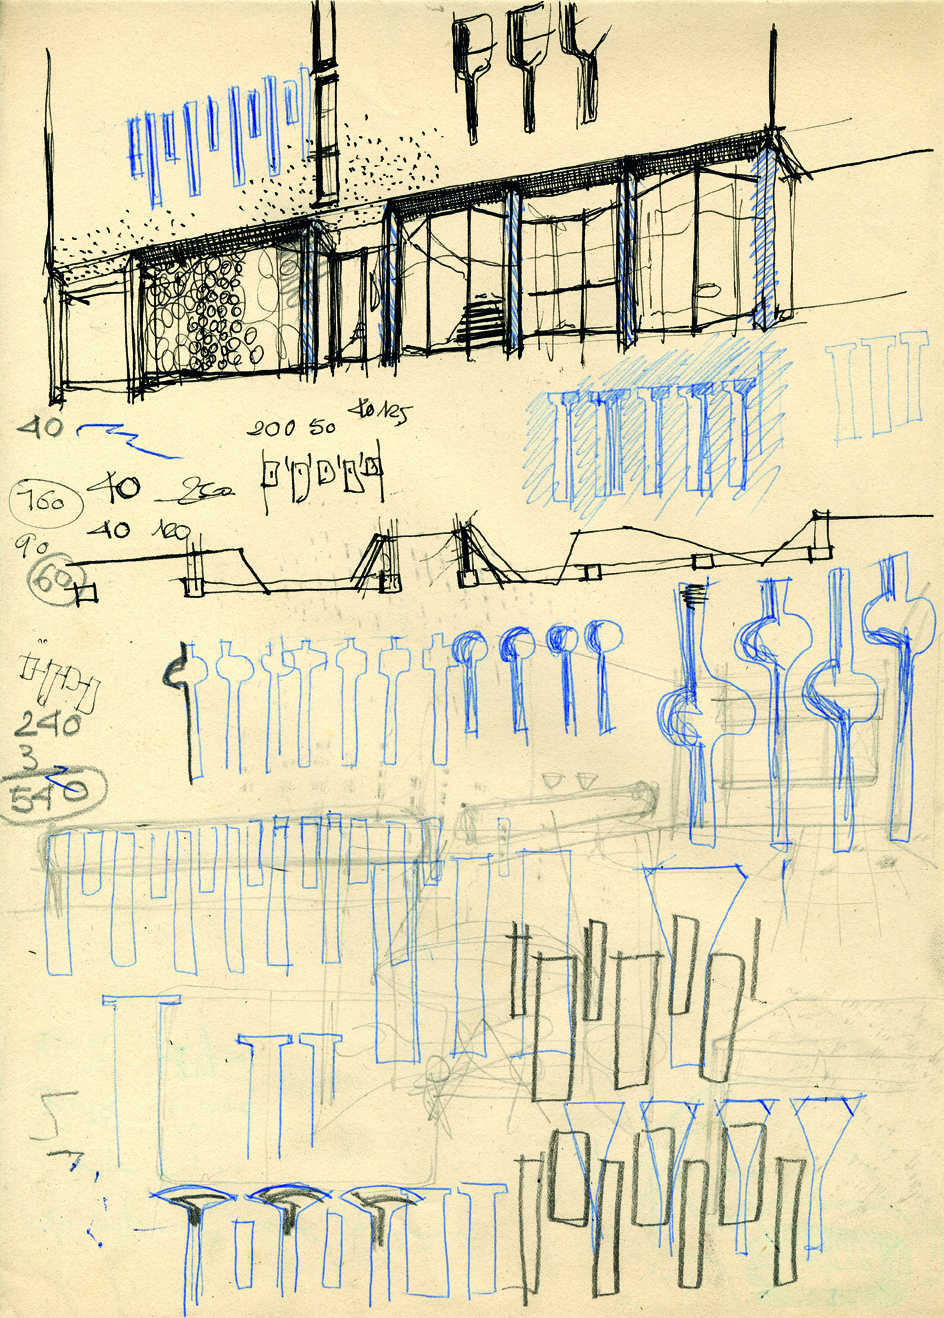 40
200 50 40 125
160
40 250
90
40 120
60
240
3
540